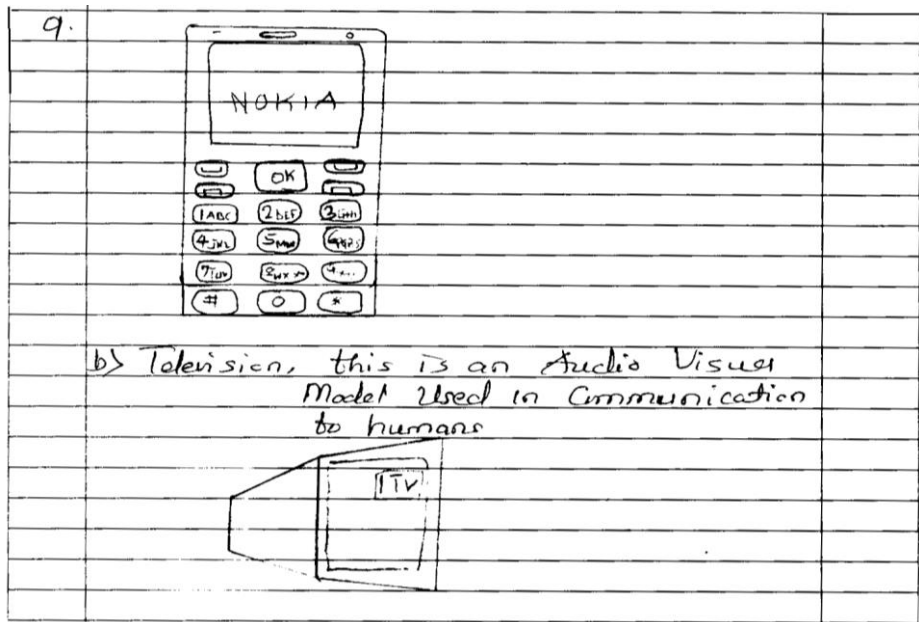 9.
NOKIA
OK
1ABC 2DEF 3GHI
4JKL 5MNO 6PQRS
8WX
# 0 *
b) Television, this is an Audio Visual
Model Used in Communication
to humans
ITV